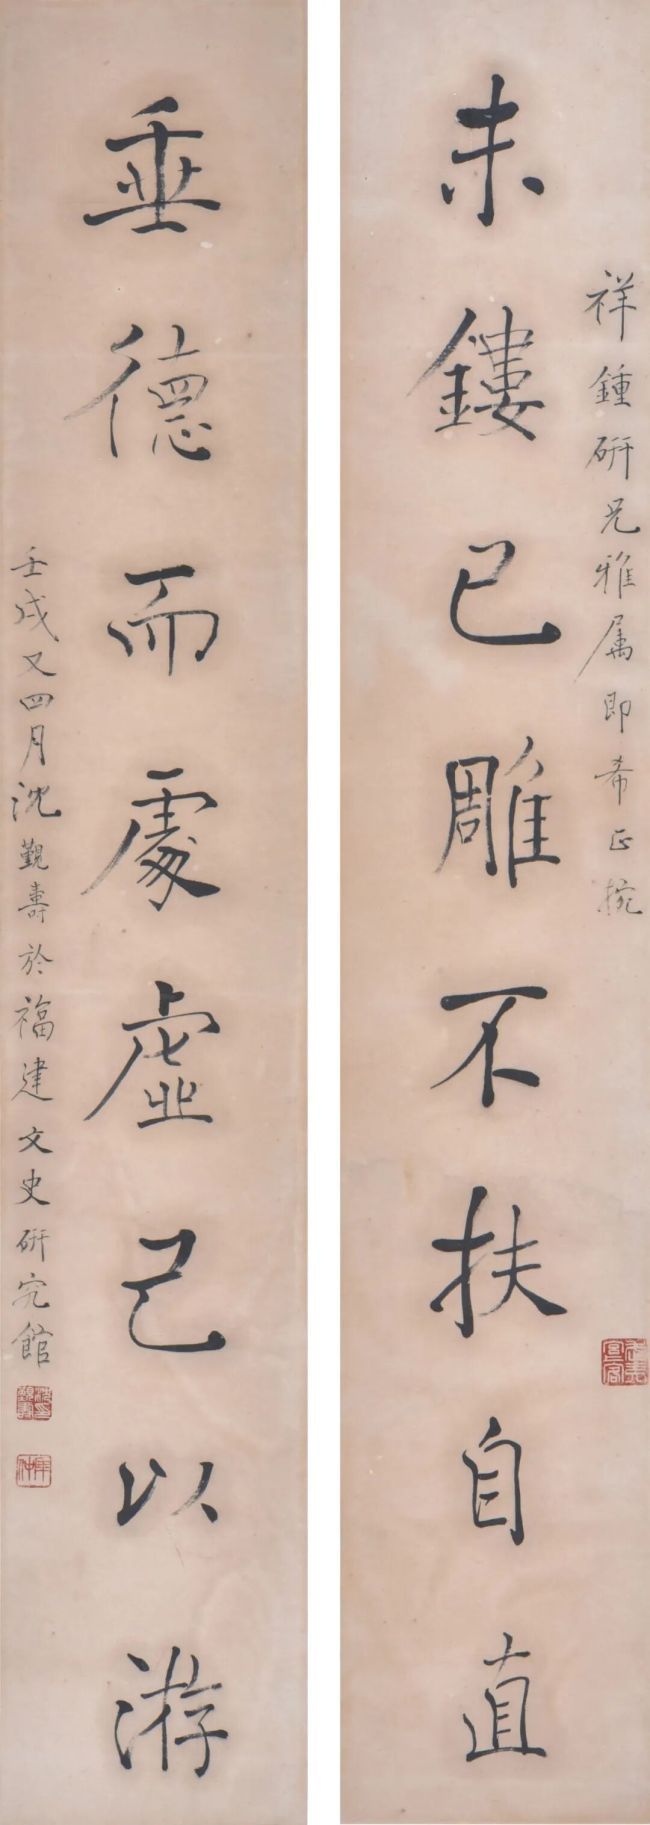 祥鍾硏兄雅属即希正捥
未鏤已雕不扶自直
垂德而處虚己以游
壬戌又四月沈覲壽於福建文史硏究館